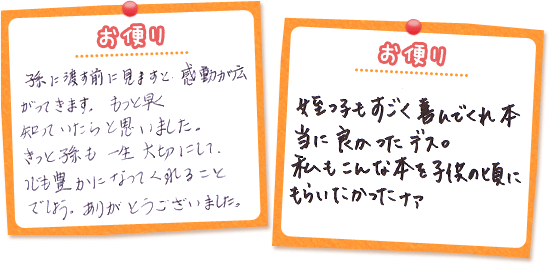 お便り
孫に渡す前に見ますと、感動が広
がってきます。もっと早く
知っていたらと思いました。
きっと孫も一生大切にして、
心も豊かになってくれること
でしょう。ありがとうございました。
お便り
姪っ子もすごく喜んでくれ本
当に良かったデス。
私もこんな本を子供の頃に
もらいたかったナァ